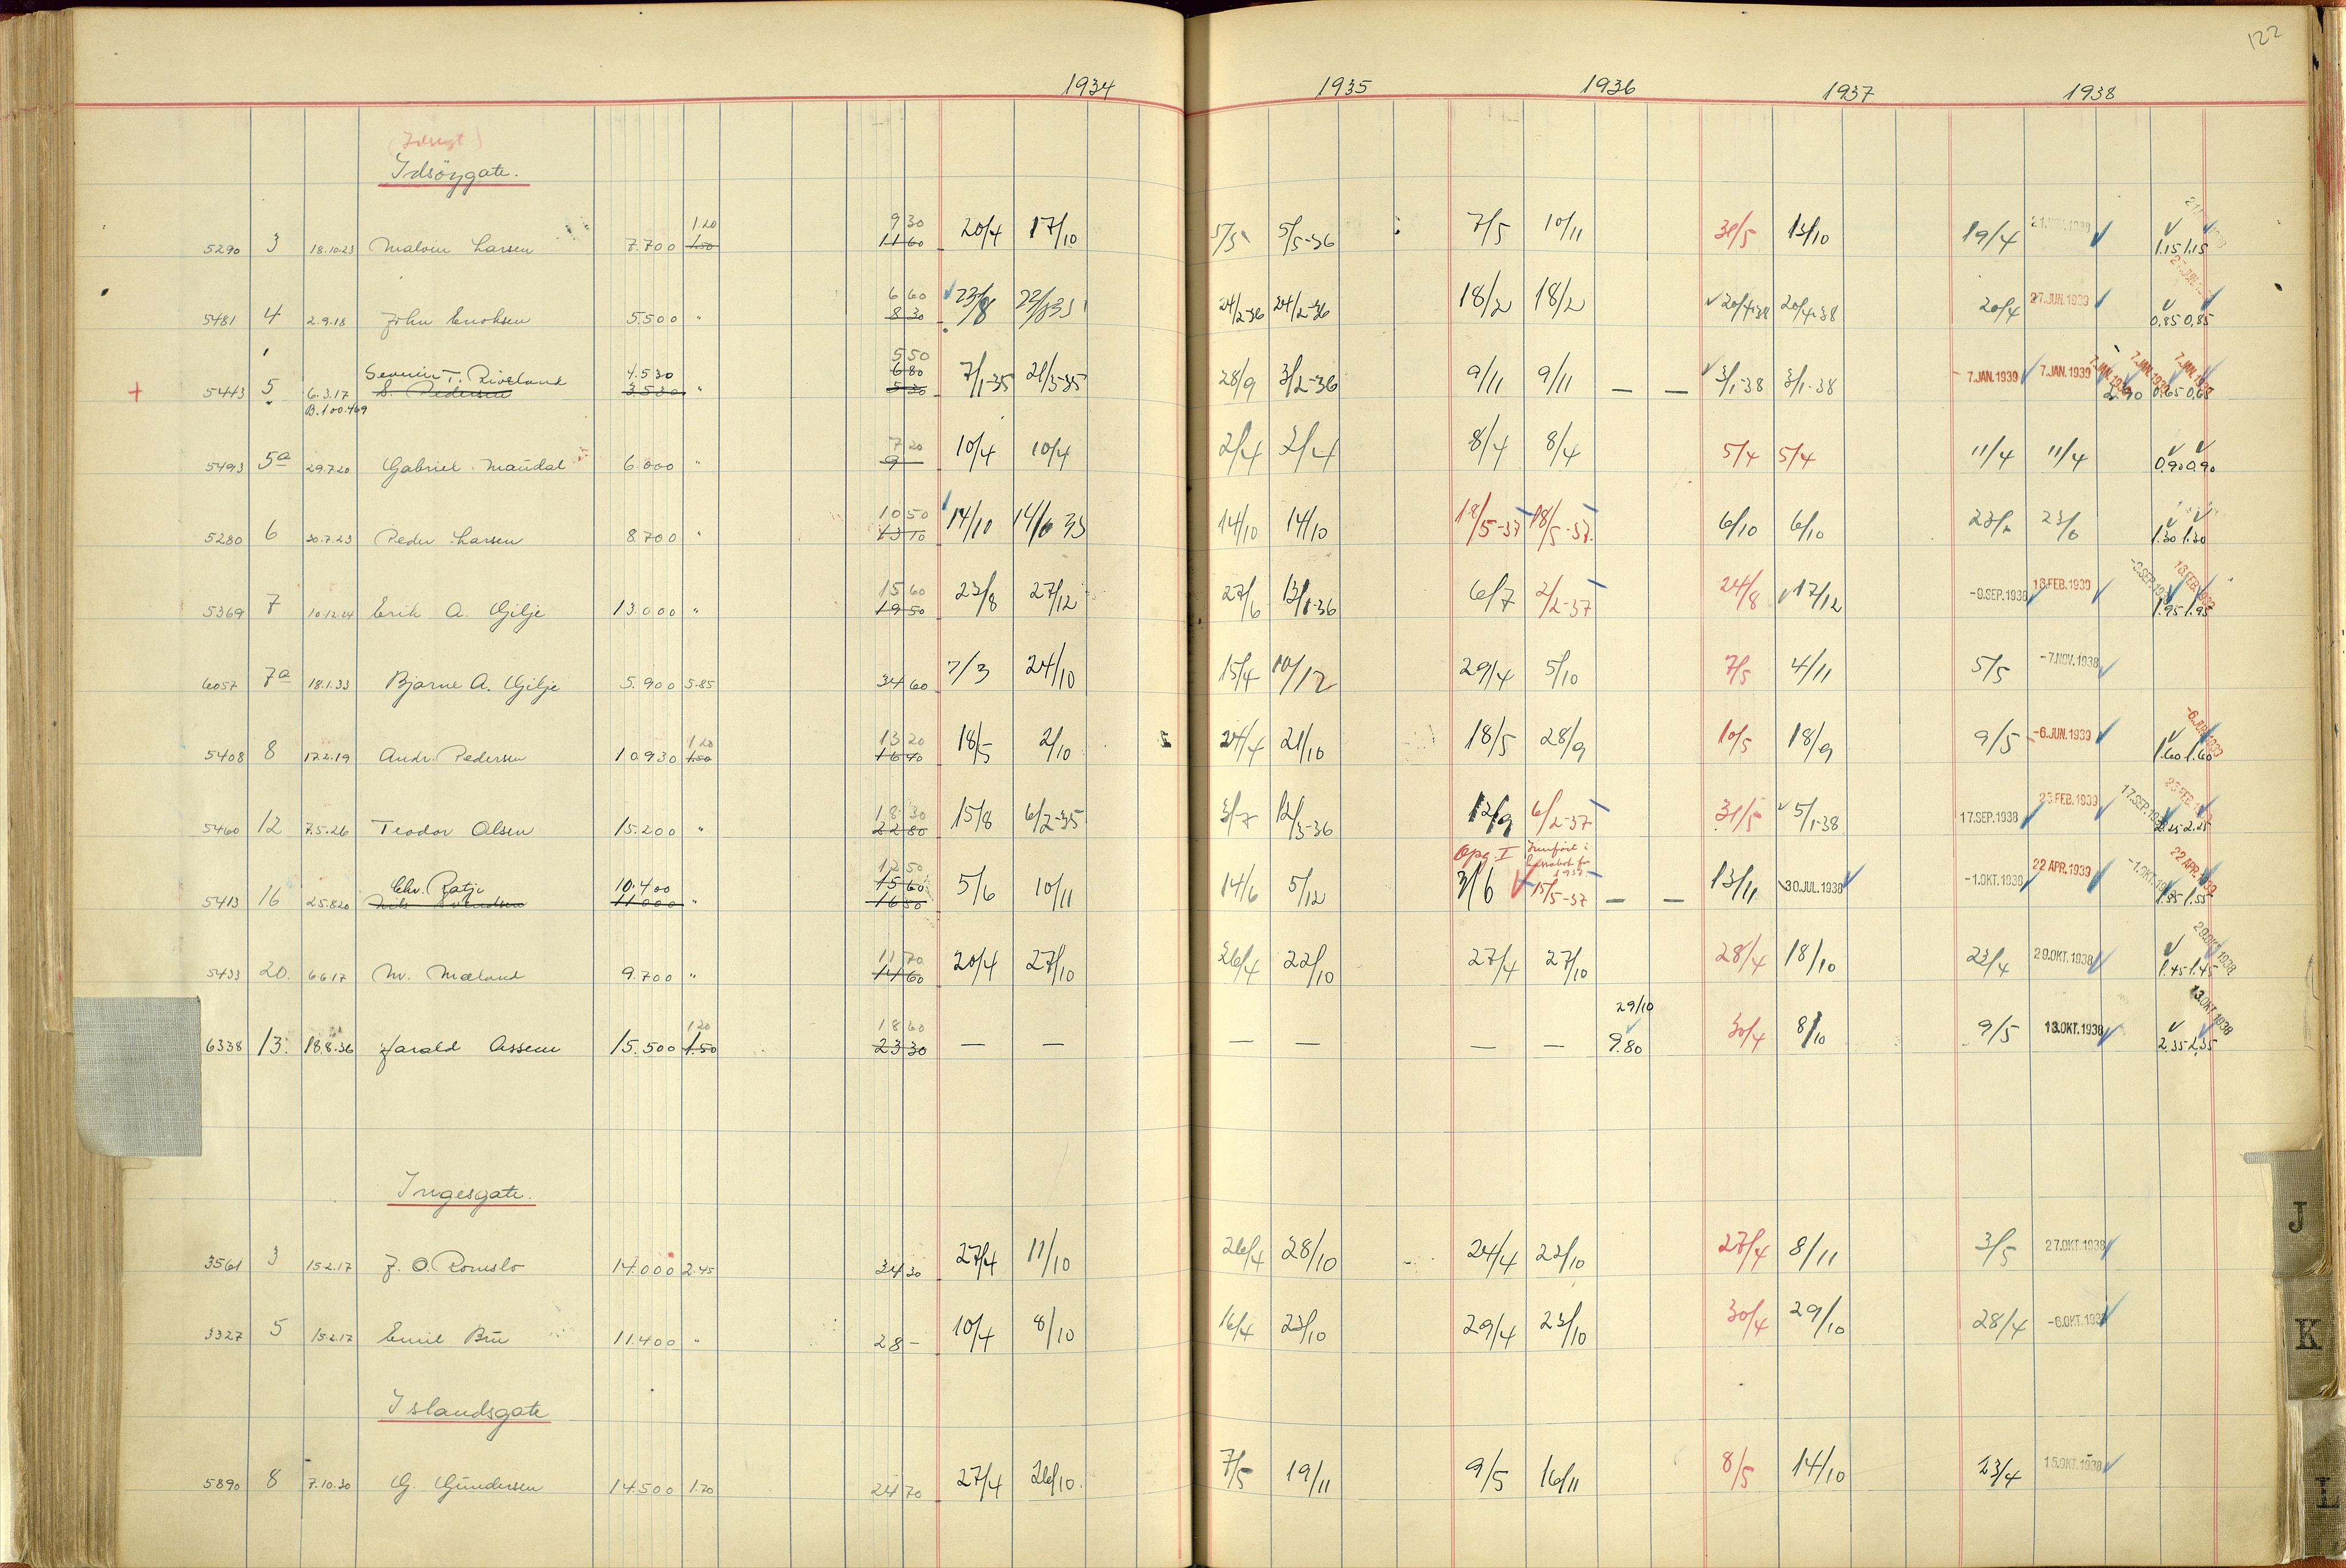 122
1934 1935 1936 1937 1938
Idsöygate.
1.20 9 30
5290 3 18.10.23 Malvin Larsen 7.700 1.50 11 60 20/4 17/10 5/5-36 7/5 10/11 31/5 13/10 19/4 21.NOV.1938 1.15 1.15
6 60
5481 4 2.9.18 John Enoksen 5.500 " 8 30 23/8 24/2-36 24/2-36 18/2 18/2 20/4-38 20/4-38 20/4 27.JUN.1939 0.85 0.85
5 50
Severin T. 4.530 6 80
+ 5443 5 6.3.17 S. Pedersen 3530 " 5 30 7/1-35 21/3-35 28/9 3/2-36 9/11 9/11 — — 3/1-38 3/1-38 7.JAN.1939 7.JAN.1939 7.JAN.1939 7.JAN.1939 7.JAN.1939 2.90 0.65 0.65
B.100.469
7 20
5493 5a 29.7.20 Gabriel Maudal 6.000 " 9 — 10/4 10/4 2/4 2/4 8/4 8/4 5/4 5/4 11/4 11/4 0.90 0.90
10 50
5280 6 30.7.23 Peder Larsen 8.700 " 13 10 14/10 14/10 14/10 18/5-37 18/5-37 6/10 6/10 23/ 23/ 1.30 1.30
15 60
5369 7 10.12.24 Erik A. Gilje 13.000 " 19 50 23/8 27/12 27/6 13/1-36 6/7 2/2-37 24/8 17/12 -9.SEP.1938 16.FEB.1939 1.95 1.95
6057 7a 18.1.33 Bjarne A. Gilje 5.900 5.85 34 60 7/3 24/10 15/4 10/12 29/4 5/10 7/5 4/11 5/5 -7.NOV.1938
1.20 13 20
5408 8 17.2.19 Andr. Pedersen 10.930 1.50 16 40 18/5 2/10 24/4 21/10 18/5 28/9 10/5 18/9 9/5 -6.JUN.1939 -6.JUN.1939 1.60 1.60
18 30
5460 12 7.5.26 Teodor Olsen 15.200 " 22 80 15/8 6/2-35 12/3-36 12/9 6/2-37 31/5 5/1-38 17.SEP.1938 23.FEB.1939 17.SEP.1938 2.25 2.25
Opg. I
12 50
Chr. Ratje 10.400 15 60
5413 16 25.8.20 Nils Svendsen 11.000 " 16 50 5/6 10/11 14/6 5/12 3/6 15/5-37 — — 13/11 30.JUL.1938 -1.OKT.1938 22 APR.1939 22 APR.1939 1.55 1.55
11 70
5433 20. 6.6.17 M. Mæland 9.700 " 14 60 20/4 27/10 26/4 22/10 27/4 27/10 28/4 18/10 23/4 29.OKT.1938 29.OKT.1938 1.45 1.45
1.20 18 60 29/10
6338 13. 18.8.36 Harald Assem 15.500 1.50 23 30 — — — — — — 9.80 30/4 8/10 9/5 13.OKT.1938 13.OKT.1938 2.35 2.35
Ingesgate.
3561 3 15.2.17 J. O. Romslo 14.000 2.45 34 30 27/4 11/10 26/4 28/10 24/4 22/10 27/4 8/11 3/5 27.OKT.1938
3327 5 15.2.17 Emil Bru 11.400 " 28 — 10/4 8/10 16/4 23/10 29/4 23/10 30/4 29/10 28/4 -6.OKT.1938
Islandsgate
5890 8 7.10.30 G. Gundersen 14.500 1.70 24 70 27/4 26/10. 7/5 19/11 9/5 16/11 8/5 14/10 23/4 15.OKT.1938
J
K
L